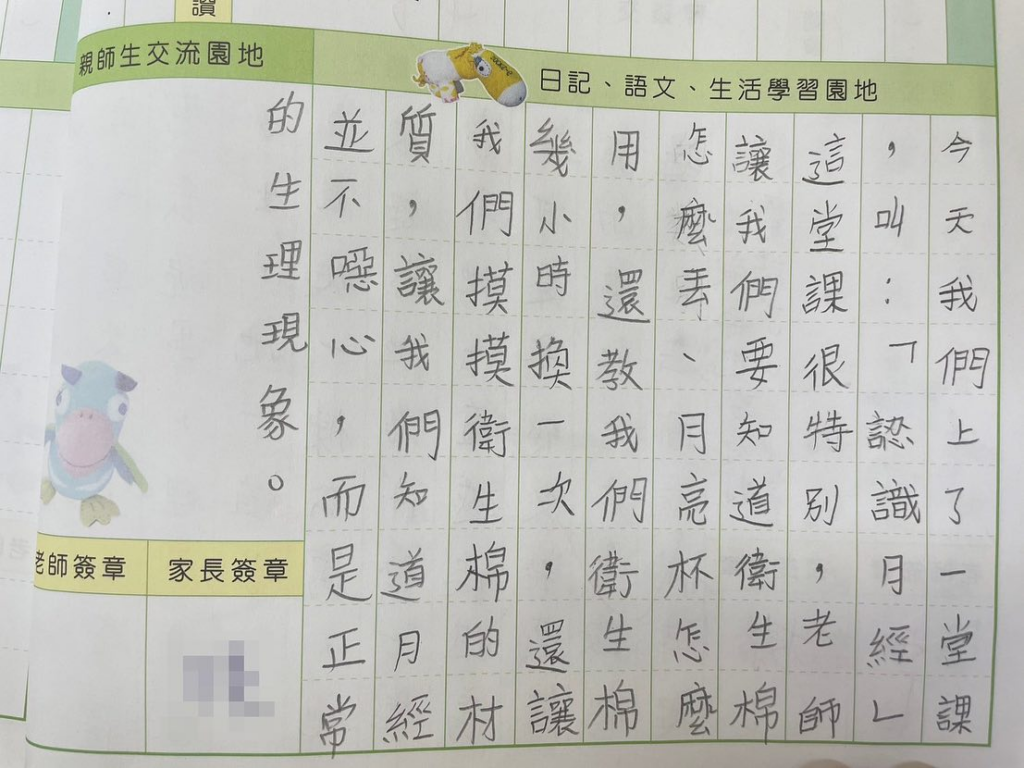 讚
親師生交流園地
日記、語文、生活學習園地
今天我們上了一堂課
，叫：「認識月經」
這堂課很特別，老師
讓我們要知道衛生棉
怎麼丟、月亮杯怎麼
用，還教我們衛生棉
幾小時換一次，還讓
我們摸摸衛生棉的材
質，讓我們知道月經
並不噁心，而是正常
的生理現象。
老師簽章
家長簽章